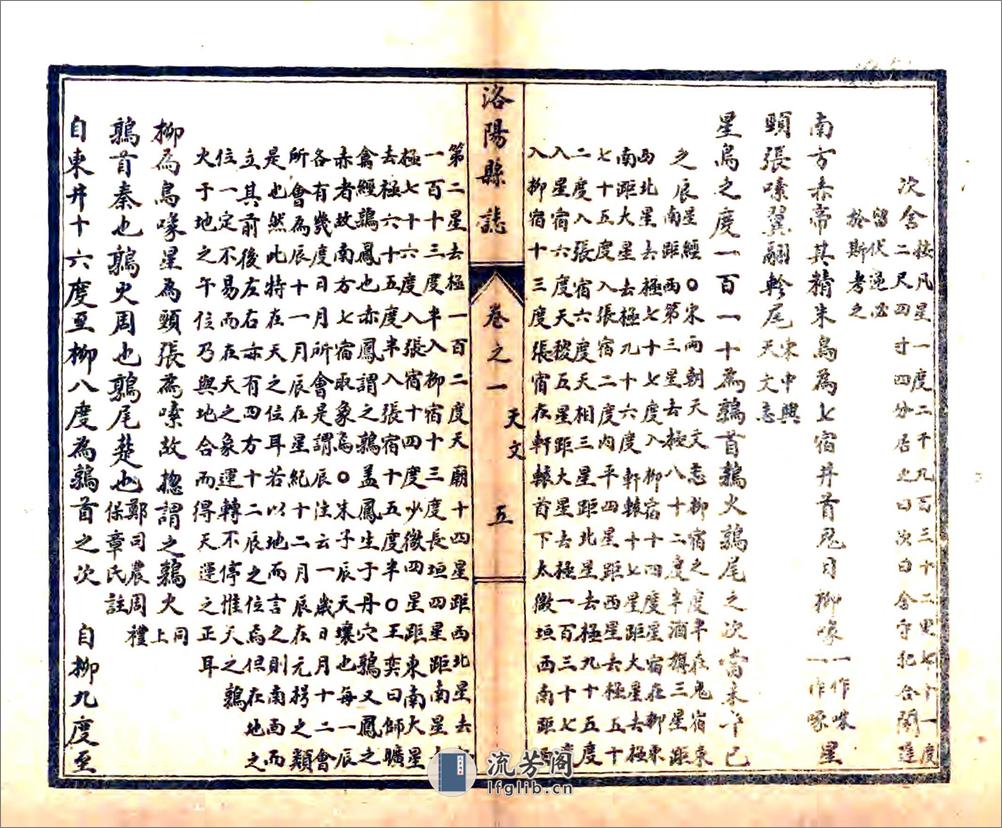 次舍按凡星一度二千九百三十二里七十一度
二尺四寸四分居之曰次曰舍守犯合鬬逢
留伏逆必
於斯考之
南方赤帝其精朱鳥為七宿井首鬼目柳喙一作咮一作啄星
頸張嗉翼翮軫尾宋中興天文志
星鳥之度一百一十為鶉首鶉火鶉尾之次當未午巳
之辰星經○宋兩朝天文志柳宿之度半在鬼宿東
南距西第三星去極八十二度半酒旗三星距
西北星去極七十七度入柳宿十四度星宿在柳東
南距大星去極九十六度軒轅十七星距大星去極
七十五度入張宿二度內平四星距西星去極五十
二度入張宿六度天相三星距北星去極九十五度
入星宿六度天稷五星距大星去極一百三十七度
入柳宿十三度張宿在軒轅首下太微垣西南距西
洛陽縣誌
卷之一 天文 五
第二星去極一百二度天廟十四星距西北星去
一百十三度半入柳宿十三度長垣四星距南星
極七十六度入張宿十四度少微四星距東南大星
去極六十五度半入張宿十五度半○王奕曰師曠
禽經鶉鳳也亦鳳謂之鶉蓋鳳生于丹穴鶉又鳳之
赤者故南方七宿取象焉○朱子辰天壤也每一辰
各有幾度日月所會是謂辰注云一歲日月十二會
所會為辰十一月辰在星紀十二月辰在元枵之類
是也然此特在天之位耳若以地而言之則南面而
立其前後左右亦有四方十二辰之位焉但在地之
位一定不易而在天之象運轉不停惟天之鶉
火于地之午位乃與地合而得天運之正耳
柳為鳥喙星為頸張為嗉故揔謂之鶉火同上
鶉首秦也鶉火周也鶉尾楚也鄭司農周禮保章氏註
自東井十六度至柳八度為鶉首之次 自柳九度至
流芳阁
lfglib.cn